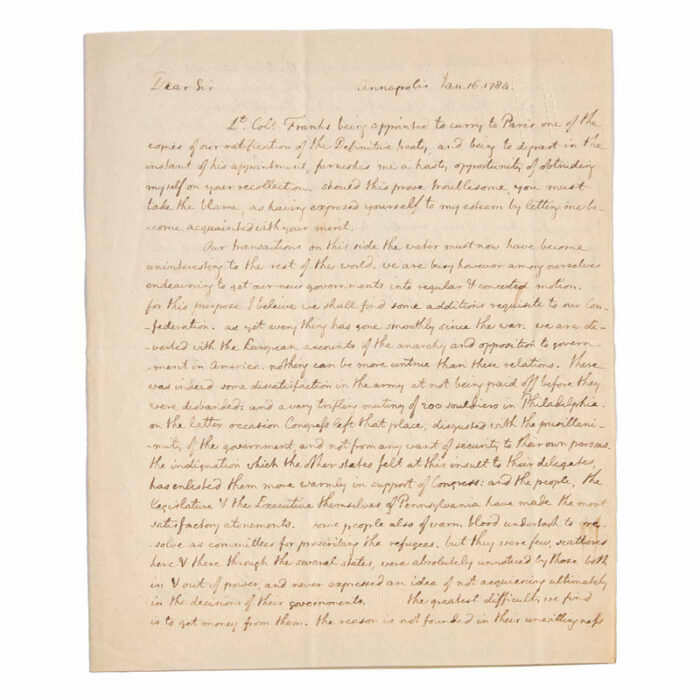 Dear Sir Annapolis Jan. 16. 1784.
Lt. Colo. Franks being appointed to carry to Paris one of the
copies of our ratification of the Definitive treaty, and being to depart in the
instant of his appointment, furnishes me a hasty opportunity of obtruding
myself on your recollection. should this prove troublesome you must
take the blame, as having exposed yourself to my esteem by letting me be-
-come acquainted with your merit.
Our transactions on this side the water must now have become
uninteresting to the rest of the world. we are busy however among ourselves
endeavoring to get our new governments into regular & concerted motion.
for this purpose I beleive we shall find some additions requisite to our Con-
-federation. as yet every thing has gone smoothly since the war. we are di-
-verted with the European accounts of the anarchy and opposition to govern-
-ment in America. nothing can be more untrue than these relations. There
was indeed some dissatisfaction in the army at not being paid off before they
were disbanded; and a very trifling mutiny of 200 souldiers in Philadelphia.
on the latter occasion Congress left that place, disgusted with the pusillani-
-mity of the government, and not from any want of security to their own persons.
the indignation which the other states felt at this insult to their delegates,
has enlisted them more warmly in support of Congress: and the people, the
Legislature & the Executive themselves of Pennsylvania have made the most
satisfactory atonements. some people also of warm blood undertook to re-
-solve as committees for proscribing the refugees. but they were few, scattered
here & there through the several states, were absolutely unnoticed by those both
in & out of power, and never expressed an idea of not acquiescing ultimately
in the decisions of their governments. the greatest difficulty we find
is to get money from them. the reason is not founded in their unwillingness